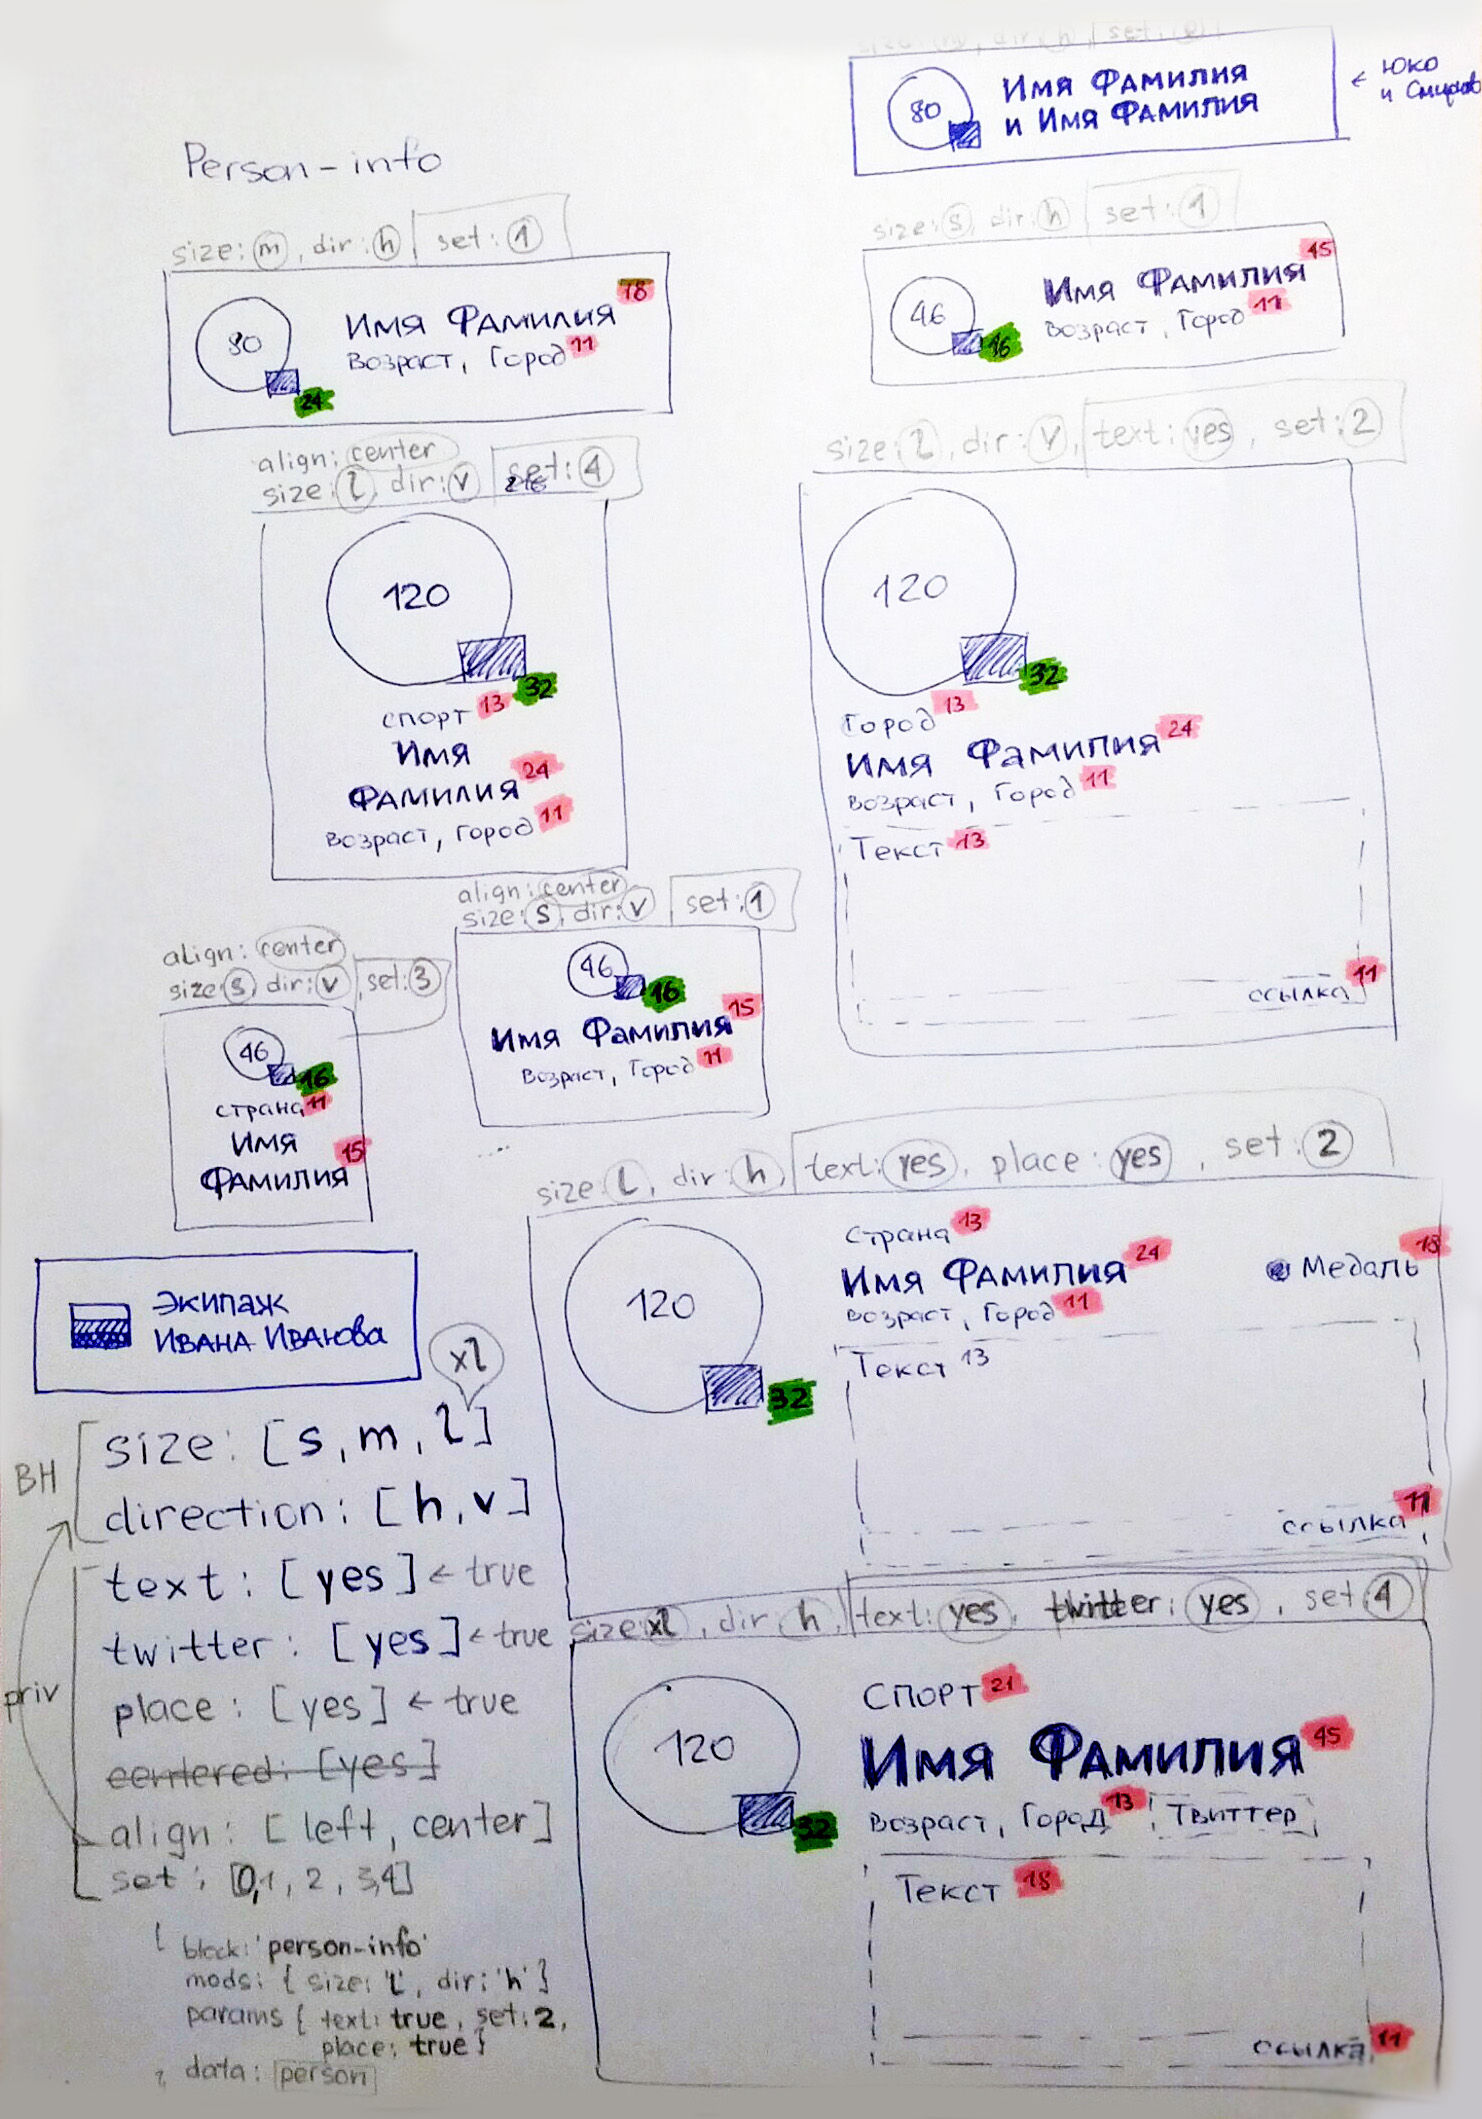 size: m, dir: h, set: 0
80
Имя Фамилия
и Имя Фамилия
← Юко
и Смирнов
Person-info
size: m, dir: h, set: 1
80
Имя Фамилия 18
Возраст, Город 11
24
size: s, dir: h, set: 1
46
Имя Фамилия 45
Возраст, Город 11
16
align: center
size: l, dir: v, set: 4
120
32
спорт 13
Имя
Фамилия 24
Возраст, Город 11
size: l, dir: v, text: yes, set: 2
120
32
Город 13
Имя Фамилия 24
Возраст, Город 11
Текст 13
ссылка 11
align: center
size: s, dir: v, set: 3
46
16
страна 11
Имя
Фамилия 15
align: center
size: s, dir: v, set: 1
46
16
Имя Фамилия 15
Возраст, Город 11
size: l, dir: h, text: yes, place: yes, set: 2
120
32
Страна 13
Имя Фамилия 24
Возраст, Город 11
Медаль 18
Текст 13
ссылка 11
Экипаж
Ивана Иванова
xl
BH
size: [s, m, l]
direction: [h, v]
priv
text: [yes] ← true
twitter: [yes] ← true
place: [yes] ← true
centered: [yes]
align: [left, center]
set: [0,1, 2, 3,4]
size: xl, dir: h, text: yes, twitter: yes, set: 4
120
32
Спорт 21
Имя Фамилия 45
Возраст, Город 13, Твиттер
Текст 18
ссылка 11
{ block: 'person-info'
mods: { size: 'l', dir: 'h' }
params { text: true, set: 2,
place: true }
data: person
}